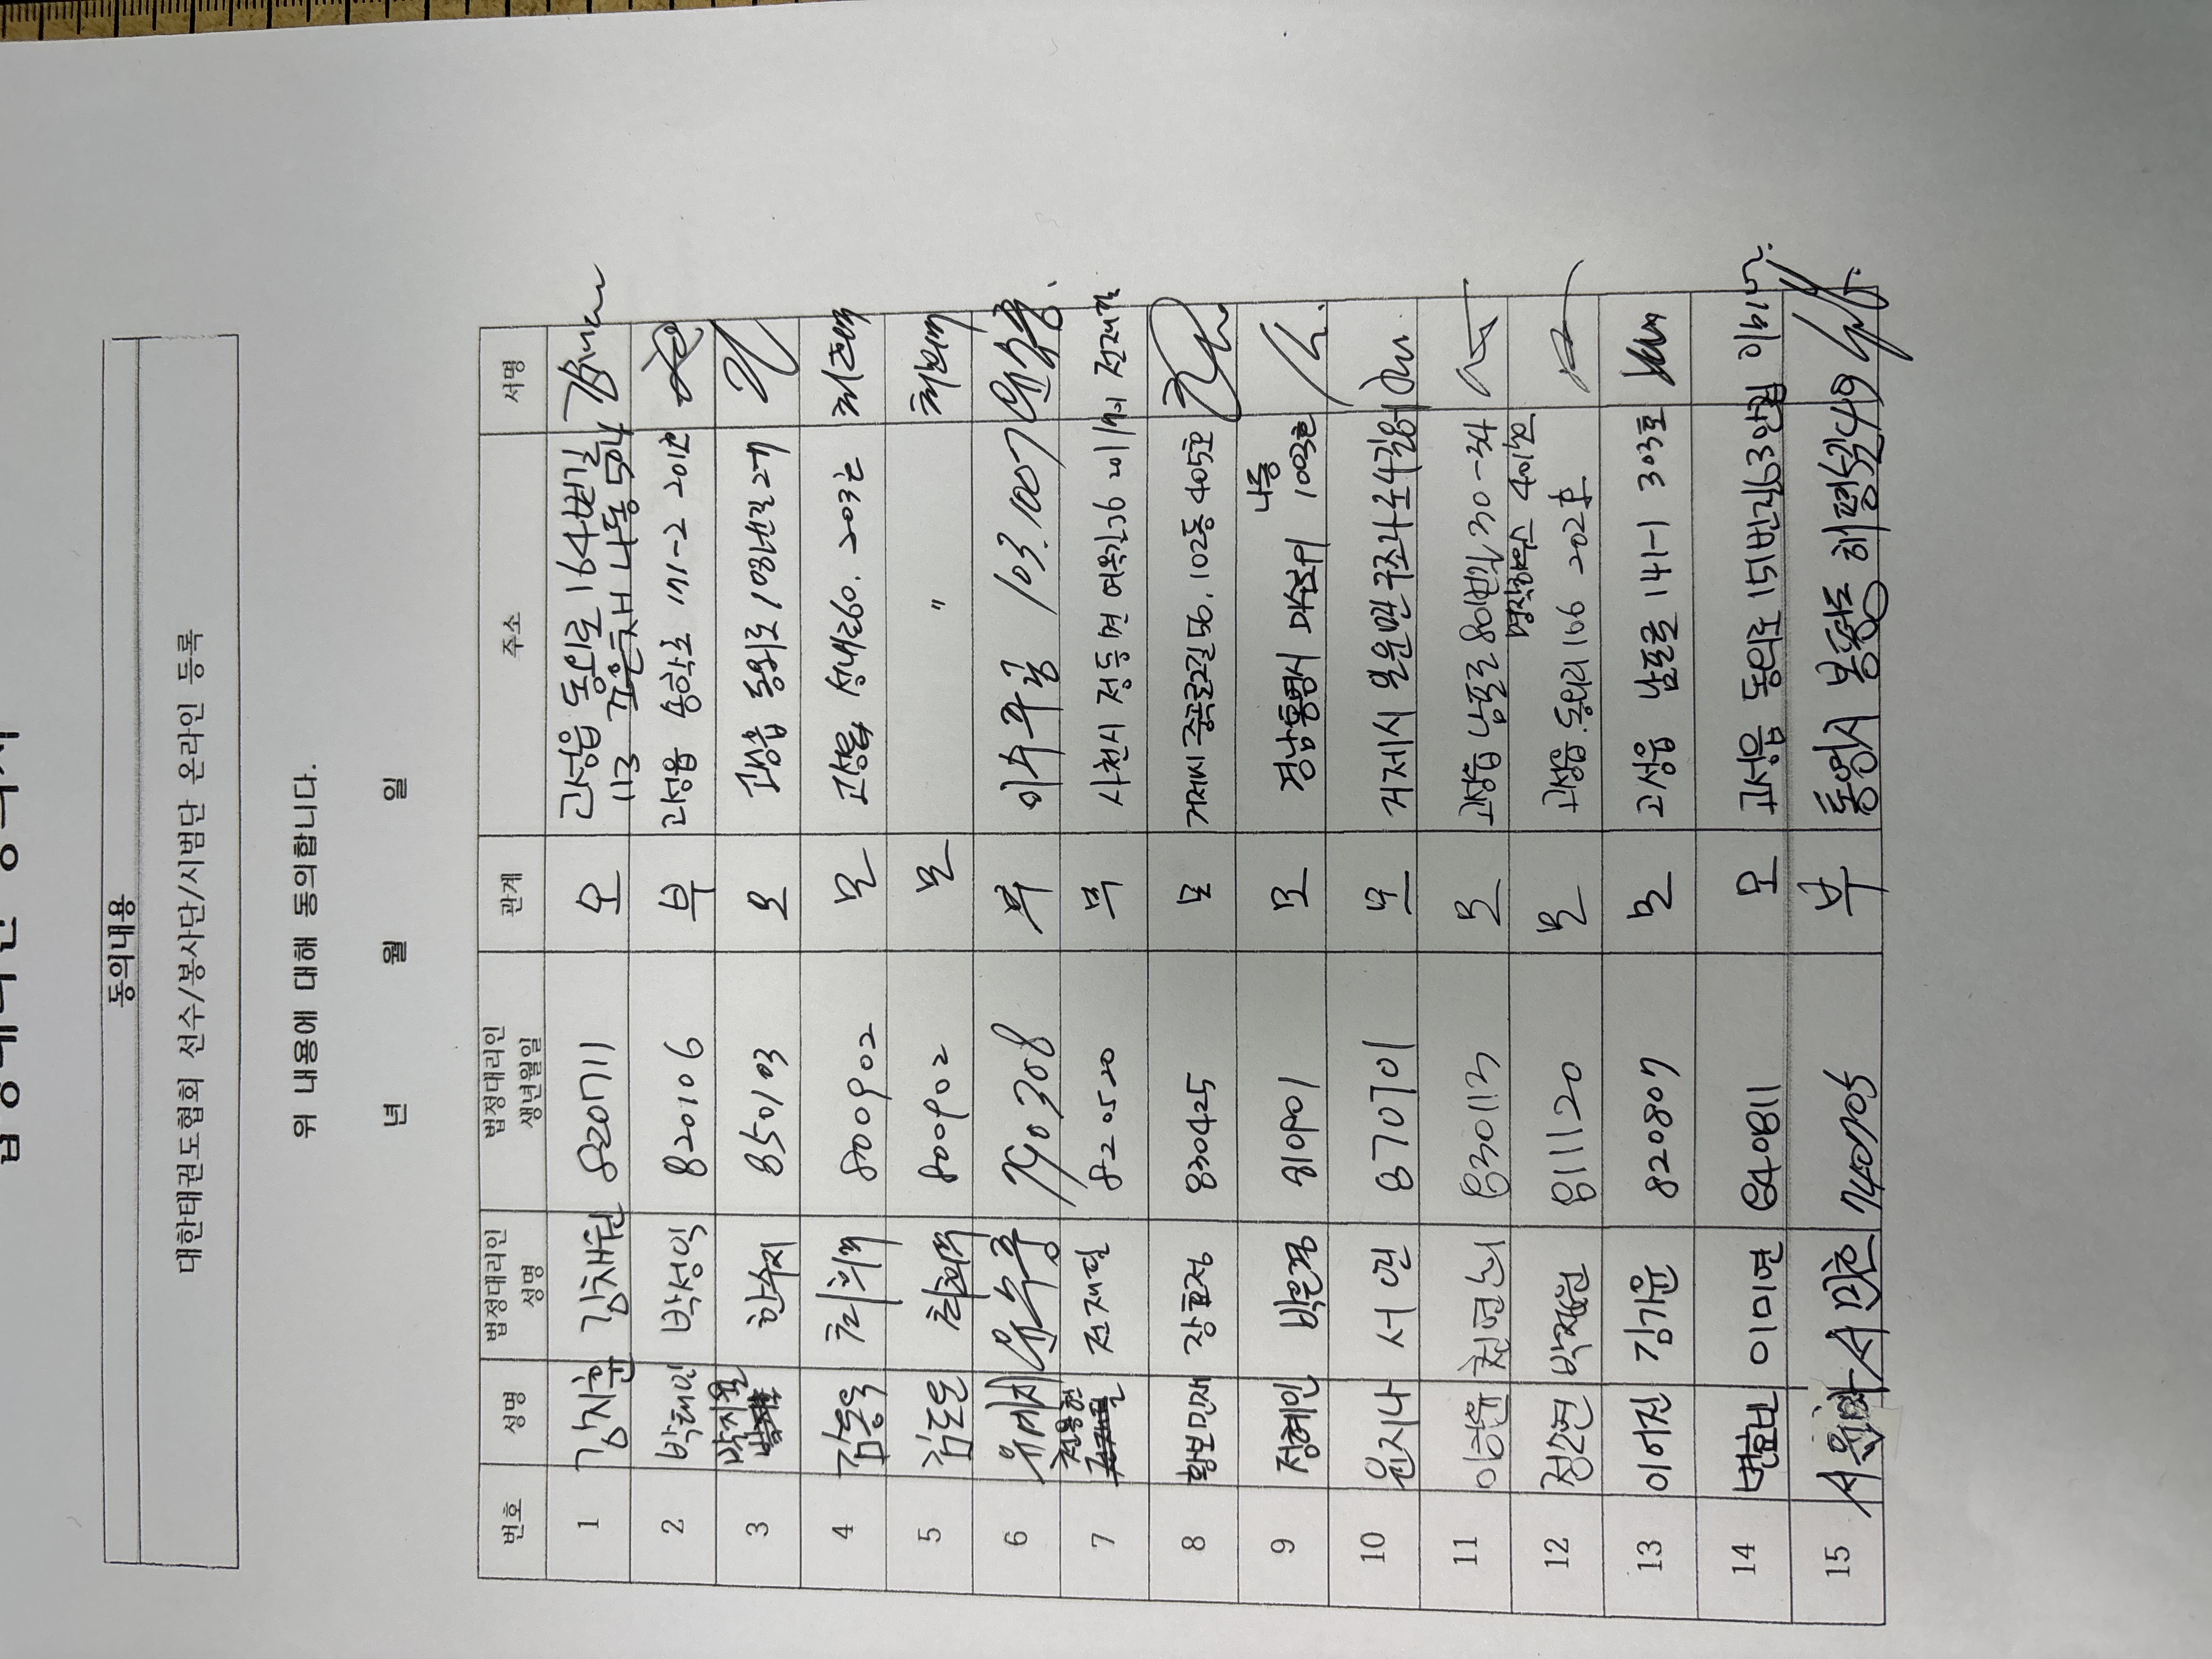 동의내용
대한태권도협회 선수/봉사단/시범단 온라인 등록
위 내용에 대해 동의합니다.
년 월 일
번호 성명 법정대리인 성명 법정대리인 생년월일 관계 주소 서명
1 강지훈 820711 모 고성읍 동외로 164번길
113 나동 501
2 박태민 박성익 820106 부 고성읍 송학로 171-2 201호
3 박지율 한수지 850103 모 고성읍 동외로 108번길 27
4 김동욱 800902 모 고성읍 성내로60. 203호
5 김도운 800902 모 〃
6 유예지 유수룡 790308 부 이수주일 103.1007 유수룡.
7 전용현 전재필 820520 부 사천시 정동면 여옥길36 전재필
8 황보민재 장효정 830425 모 거제시 중곡로2길 56. 102동 405호
9 정혜인 박은정 810901 모 경남 통영시 나동 1003호
10 윤지나 서연 870701 모 거제시 일운면 구조라로4길
11 이하윤 830113 모 고성읍 남포로 80번길 30-34
12 정수현 박재원 811120 모 고성읍. 동외리 166 202호
13 이어진 김가윤 820807 모 고성읍 남포로 141-1 303호
14 변효빈 이미연 840811 모 고성읍 동외로 151번길 이미연
15 740705 부 통영시 봉평동 해평5길 49